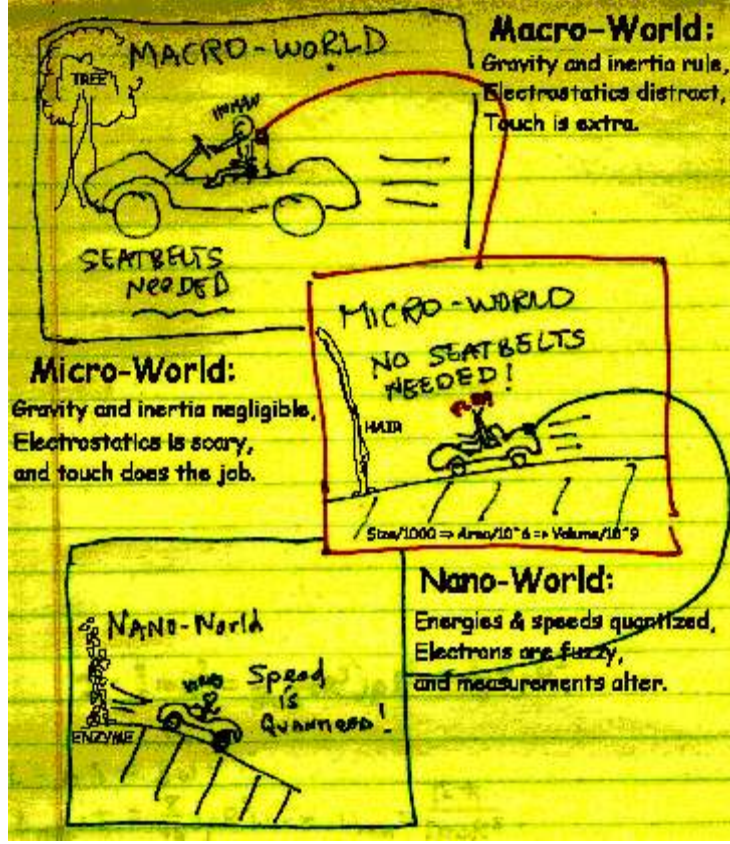 MACRO-WORLD
TREE
HUMAN
SEATBELTS
NEEDED
Macro-World:
Gravity and inertia rule,
Electrostatics distract,
Touch is extra.
MICRO-WORLD
NO SEATBELTS
NEEDED!
HAIR
Size/1000 => Area/10^6 => Volume/10^9
Micro-World:
Gravity and inertia negligible,
Electrostatics is scary,
and touch does the job.
NANO-World
Speed
is
QUANTIZED!
ENZYME
Nano-World:
Energies & speeds quantized,
Electrons are fuzzy,
and measurements alter.